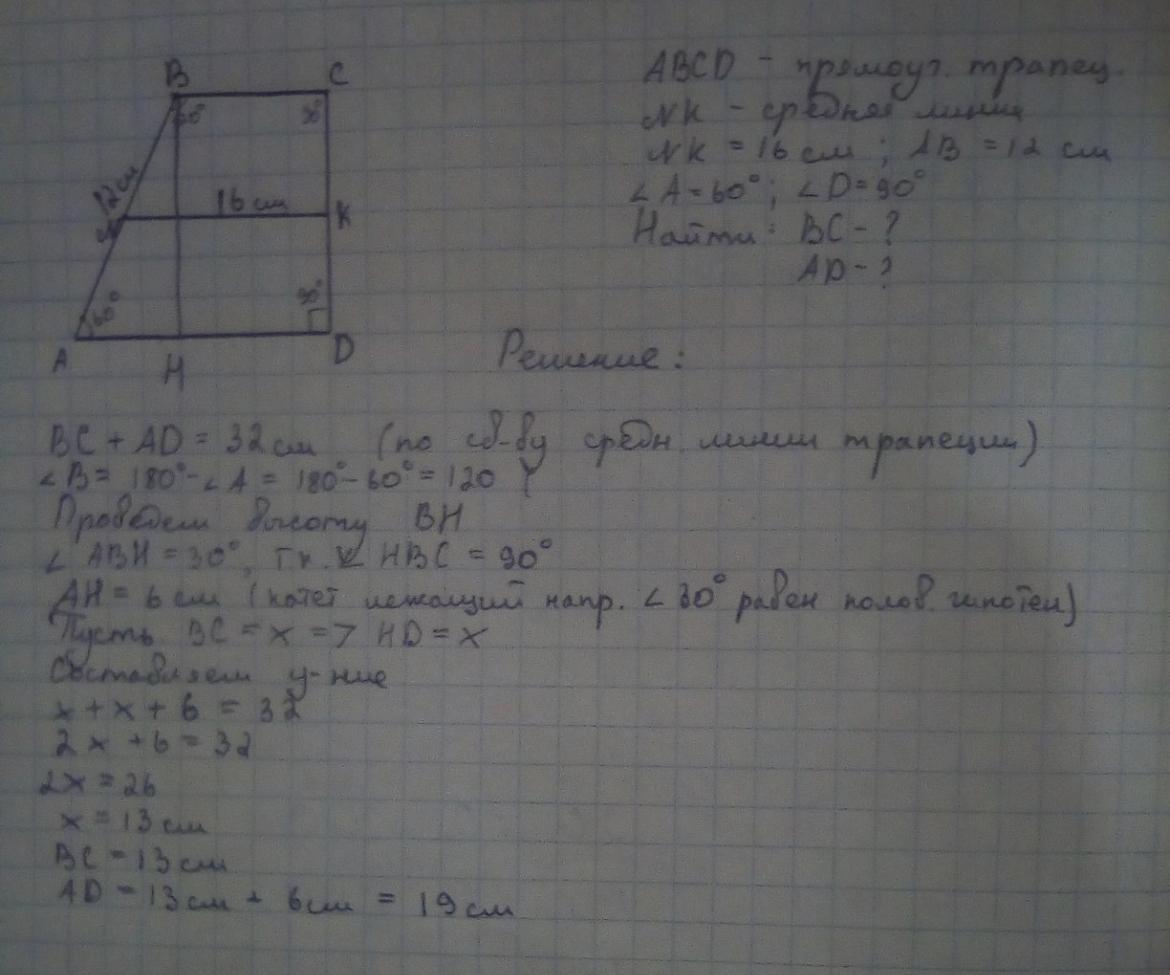 B C
30° 90°
12см
16 см
N K
60° 90°
A H D
ABCD - прямоуг. трапец.
NK - средняя линия
NK = 16 см ; AB = 12 см
∠A = 60° ; ∠D = 90°
Найти: BC - ?
AD - ?
Решение:
BC + AD = 32 см (по св-ву средн. линии трапеции)
∠B = 180° - ∠A = 180° - 60° = 120
Проведем высоту BH
∠ABH = 30°, т.к. ∠HBC = 90°
AH = 6 см (катет лежащий напр. ∠30° равен полов. гипотен)
Пусть BC = x => HD = x
Составляем у-ние
x + x + 6 = 32
2x + 6 = 32
2x = 26
x = 13 см
BC = 13 см
AD = 13 см + 6 см = 19 см